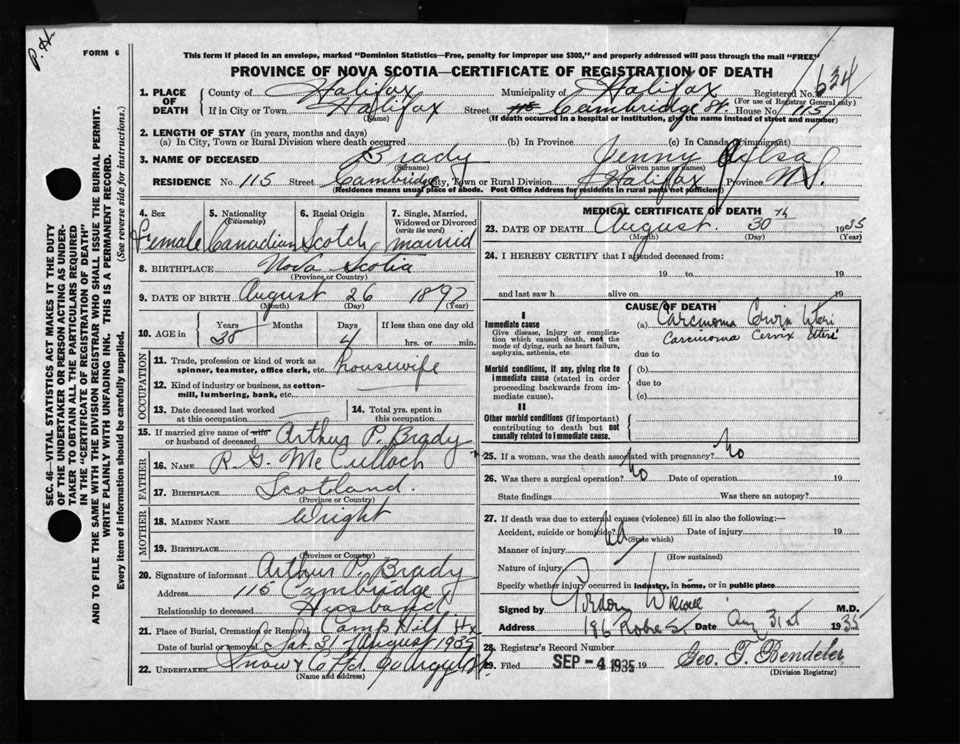 P.H.
FORM 6
This form if placed in an envelope, marked "Dominion Statistics—Free, penalty for improper use $300," and properly addressed will pass through the mail "FREE"
PROVINCE OF NOVA SCOTIA—CERTIFICATE OF REGISTRATION OF DEATH
SEC. 46—VITAL STATISTICS ACT MAKES IT THE DUTY
OF THE UNDERTAKER OR PERSON ACTING AS UNDER-
TAKER TO OBTAIN ALL THE PARTICULARS REQUIRED
IN THE "CERTIFICATE OF REGISTRATION OF DEATH"
AND TO FILE THE SAME WITH THE DIVISION REGISTRAR WHO SHALL ISSUE THE BURIAL PERMIT.
WRITE PLAINLY WITH UNFADING INK. THIS IS A PERMANENT RECORD.
Every item of information should be carefully supplied. (See reverse side for instructions.)
1. PLACE OF DEATH County of Halifax Municipality of Halifax Registered No. 634
(For use of Registrar General only)
If in City or Town Halifax Street Cambridge St. House No. 115
(Name) (If death occurred in a hospital or institution, give the name instead of street and number)
2. LENGTH OF STAY (in years, months and days)
(a) In City, Town or Rural Division where death occurred (b) In Province (c) In Canada (if immigrant)
3. NAME OF DECEASED Brady Jenny Ailsa
(Surname) (Given name or names)
RESIDENCE No. 115 Street Cambridge City, Town or Rural Division Halifax Province N.S.
(Residence means usual place of abode. Post Office Address for residents in rural parts not sufficient)
4. Sex 5. Nationality (Citizenship) 6. Racial Origin 7. Single, Married, Widowed or Divorced (write the word)
Female Canadian Scotch married
8. BIRTHPLACE Nova Scotia
(Province or Country)
9. DATE OF BIRTH August 26 1897
(Month) (Day) (Year)
10. AGE in Years Months Days If less than one day old
38 4 hrs. or min.
OCCUPATION
11. Trade, profession or kind of work as spinner, teamster, office clerk, etc. housewife
12. Kind of industry or business, as cotton-mill, lumbering, bank, etc.
13. Date deceased last worked at this occupation 14. Total yrs. spent in this occupation
15. If married give name of wife or husband of deceased Arthur P. Brady
FATHER
16. NAME R. G. McCulloch
17. BIRTHPLACE Scotland.
(Province or Country)
MOTHER
18. MAIDEN NAME Wright
19. BIRTHPLACE
(Province or Country)
20. Signature of informant Arthur P. Brady
Address 115 Cambridge
Relationship to deceased Husband
21. Place of Burial, Cremation or Removal Camp Hill Hx
Date of burial or removal Sat. 31 August 1935
22. UNDERTAKER Snow & Co Ltd.
(Name and address)
MEDICAL CERTIFICATE OF DEATH
23. DATE OF DEATH August 30th 1935
(Month) (Day) (Year)
24. I HEREBY CERTIFY that I attended deceased from:
19 to 19
and last saw h alive on 19
CAUSE OF DEATH
I
Immediate cause
Give disease, injury or complication which caused death, not the mode of dying, such as heart failure, asphyxia, asthenia, etc.
(a) Carcinoma Cervix Uteri
Carcinoma Cervix Uteri
due to
Morbid conditions, if any, giving rise to immediate cause (stated in order proceeding backwards from immediate cause).
(b)
due to
(c)
II
Other morbid conditions (if important) contributing to death but not causally related to immediate cause.
25. If a woman, was the death associated with pregnancy? No
26. Was there a surgical operation? No Date of operation 19
State findings Was there an autopsy?
27. If death was due to external causes (violence) fill in also the following:—
Accident, suicide or homicide? Date of injury 19
(State which)
Manner of injury
(How sustained)
Nature of injury
Specify whether injury occurred in industry, in home, or in public place
Signed by M.D.
Address 186 Robie St. Date Aug 31st 1935
28. Registrar's Record Number
29. Filed SEP - 4 1935 19 Geo. T. Bendeler
(Division Registrar)